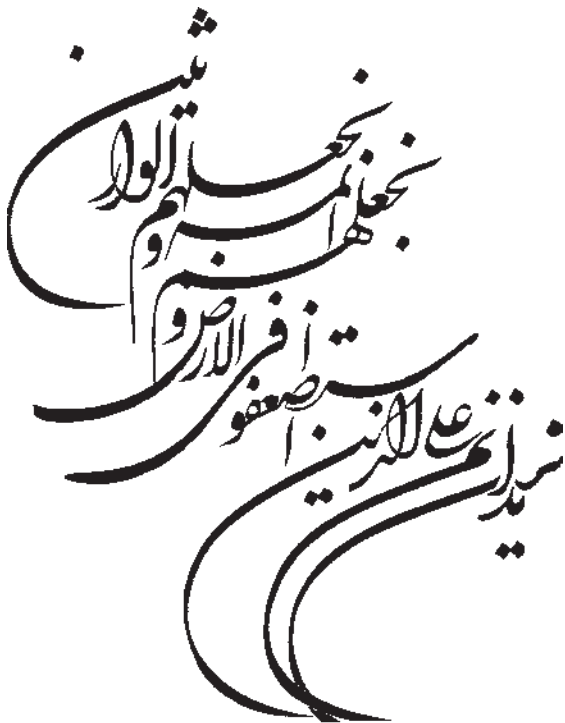 نريد ان نمن على الذين
استضعفوا فى الارض و
نجعلهم ائمه و
نجعلهم الوارثين